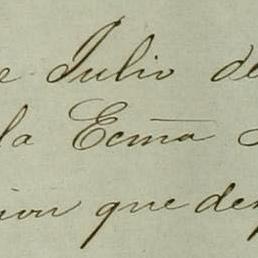 e Julio de
la Ecma
ion que des